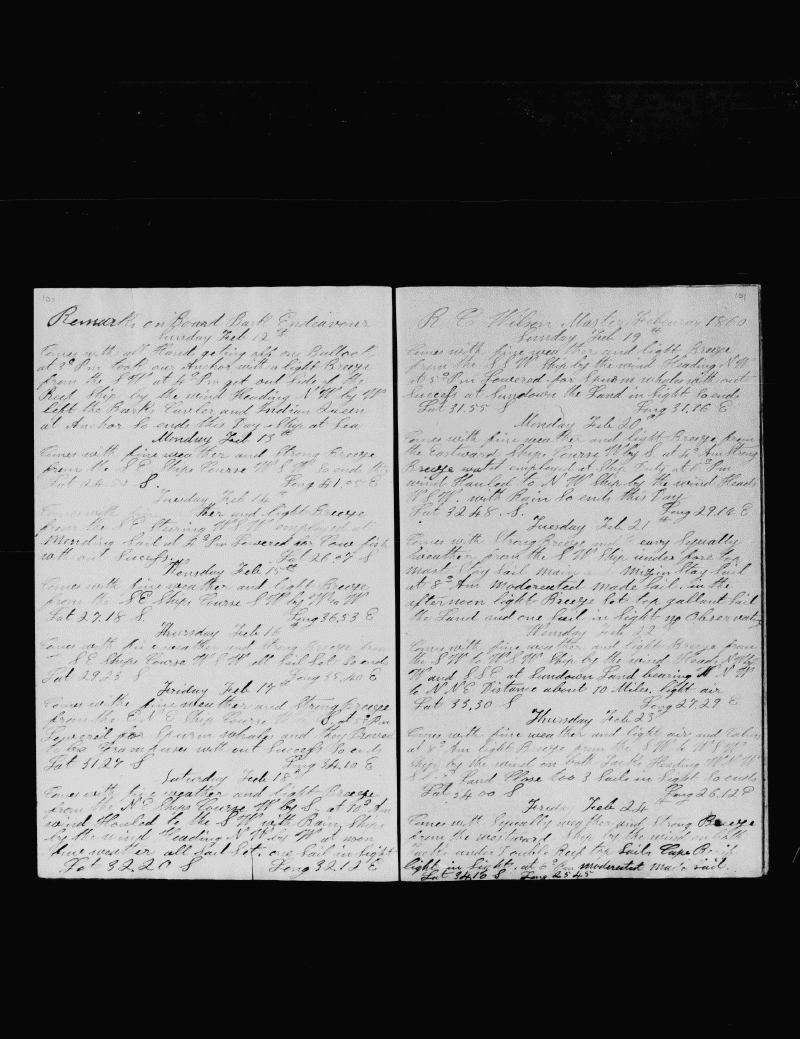 Remarks on Board Bark Endeavour
Sunday Feb 12th
Comes with all Hand geting off one Bullock
at 3° Pm took our Anchor with a light Breeze
from the S W at 4° Pm got out Side of the
Reef Ship by the wind Heading N W by W
left the Barks and Indian
at Anchor So ends this Day Ship at Sea
Monday Feb 13th
Comes with fine weather and Strong Breeze
from the S E Ships Course W S W So ends this
Lat 24.50 S. Long 41.05 E
Tuesday Feb 14th
Comes with fine weather and light Breeze
from the S E Stering W S W employed at
Mending Sail at 2° Pm Lowered for
with out Success Lat 26.07 S
Wensday Feb 15th
Comes with fine weather and light Breeze
from the S E Ships Course S W by W
Lat 27.18 S Long 36.53 E
Thursday Feb 16th
Comes with fine weather and Strong Breeze from
S E Ships Course W S W all Sail Set So ends
Lat 29.23 S Long 35.40 E
Friday Feb 17
Comes with fine weather and Strong Breeze
from the E N E Ship Course W S at 5° Pm
Lowered for Spurm whales and they Proved
to be Grampuses with out Success So ends
Lat 31.27 S Long 34.10 E
Saturday Feb 18th
Comes with fine weather and light Breeze
from the N E Ships Course W by S. at 10° Am
wind Hauled to the S W with Rain Ships
by the wind Heading N W by W at noon
fine weather all Sail Set. one Sail in Sight
Lat 32.20 S Long 32.12 E
R C Wilson Master Febuary 1860
Sunday Feb 19th
Comes with fine weather and light Breeze
from the S S W Ship by the wind Heading N W
at 5° Pm Lowered for Spurm whales with out
Success at Sundown the Land in Sight So ends
Lat 31.55 S Long 31.16 E
Monday Feb 20
Comes with fine weather and light Breeze from
the Eastward Ships Course W by S. at 4° Am Strong
Breeze employed at Ships Duty at 6° Pm
wind Hauled to N W Ship by the wind Heads
W S W. with Rain So ends this Day
Lat 32.48. S. Long 29.16 E
Tuesday Feb 21th
Comes with Strong Breeze and Squally
weather from the S W Ship under fore top
mast Stay Sail main Mizin Stay Sail
at 8° Am moderated made Sail. in the
afternoon light Breeze Set top gallant Sail
the Land and one Sail in Sight no Observation
Wensday Feb 22
Comes with fine weather and light Breeze from
the S W to W S W Ship by the wind Heads N W by
W and S S E at Sundown Land bearing W N W
to N N E Distance about 10 Miles. light air
Lat 33,30 S Long 27.29 E
Thursday Feb 23
Comes with fine weather and light air and Calm
at 8° Am light Breeze from the S W to W S W
Ship by the wind on both Tacks Heading W N W
Land Close too 3 Sails in Sight So ends
Lat 34.00 S Long 26.12 E
Friday Feb 24
Comes with Squally weather and Strong Breeze
from the westward Ship by the wind on both
Tacks under Double Reef top Sails Cape
light in Sight. at 6° Pm moderated made Sail.
Lat 34.16 S Long 25.45